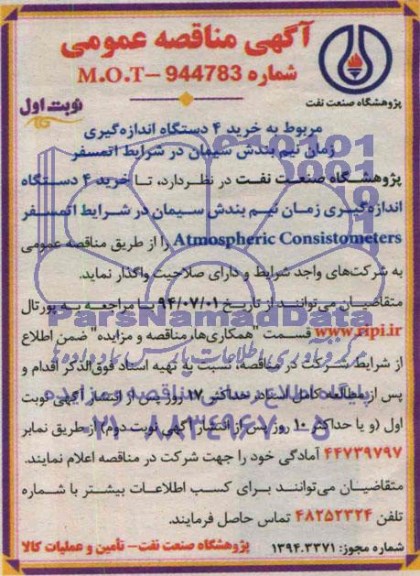 آگهی مناقصه عمومی
شماره M.O.T – 944783
پژوهشگاه صنعت نفت
نوبت اول
مربوط به خرید ۴ دستگاه اندازه‌گیری
زمان نیم بندش سیمان در شرایط اتمسفر
پژوهشگاه صنعت نفت در نظر دارد، تا خرید ۴ دستگاه
اندازه‌گیری زمان نیم بندش سیمان در شرایط اتمسفر
Atmospheric Consistometers را از طریق مناقصه عمومی
به شرکت‌های واجد شرایط و دارای صلاحیت واگذار نماید.
متقاضیان می‌توانند از تاریخ ۹۴/۰۷/۰۱ با مراجعه به پورتال
www.ripi.ir قسمت "همکاری‌ها، مناقصه و مزایده" ضمن اطلاع
از شرایط شرکت در مناقصه، نسبت به تهیه اسناد فوق‌الذکر اقدام و
پس از مطالعه کامل اسناد حداکثر ۱۷ روز پس از انتشار آگهی نوبت
اول (و یا حداکثر ۱۰ روز پس از انتشار آگهی نوبت دوم) از طریق نمابر
۴۴۷۳۹۷۹۷ آمادگی خود را جهت شرکت در مناقصه اعلام نمایند.
متقاضیان می‌توانند برای کسب اطلاعات بیشتر با شماره
تلفن ۴۸۲۵۲۳۲۴ تماس حاصل فرمایند.
شماره مجوز: ۱۳۹۴.۳۳۷۱
پژوهشگاه صنعت نفت – تأمین و عملیات کالا
ParsNamadData
۰۲۱-۸۸۳۴۹۶۷۰-۵